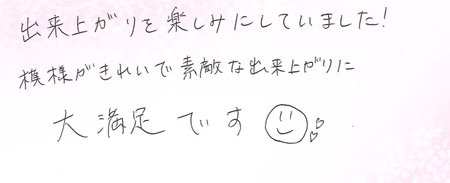 出来上がりを楽しみにしていました!
模様がきれいで素敵な出来上がりに
大満足です